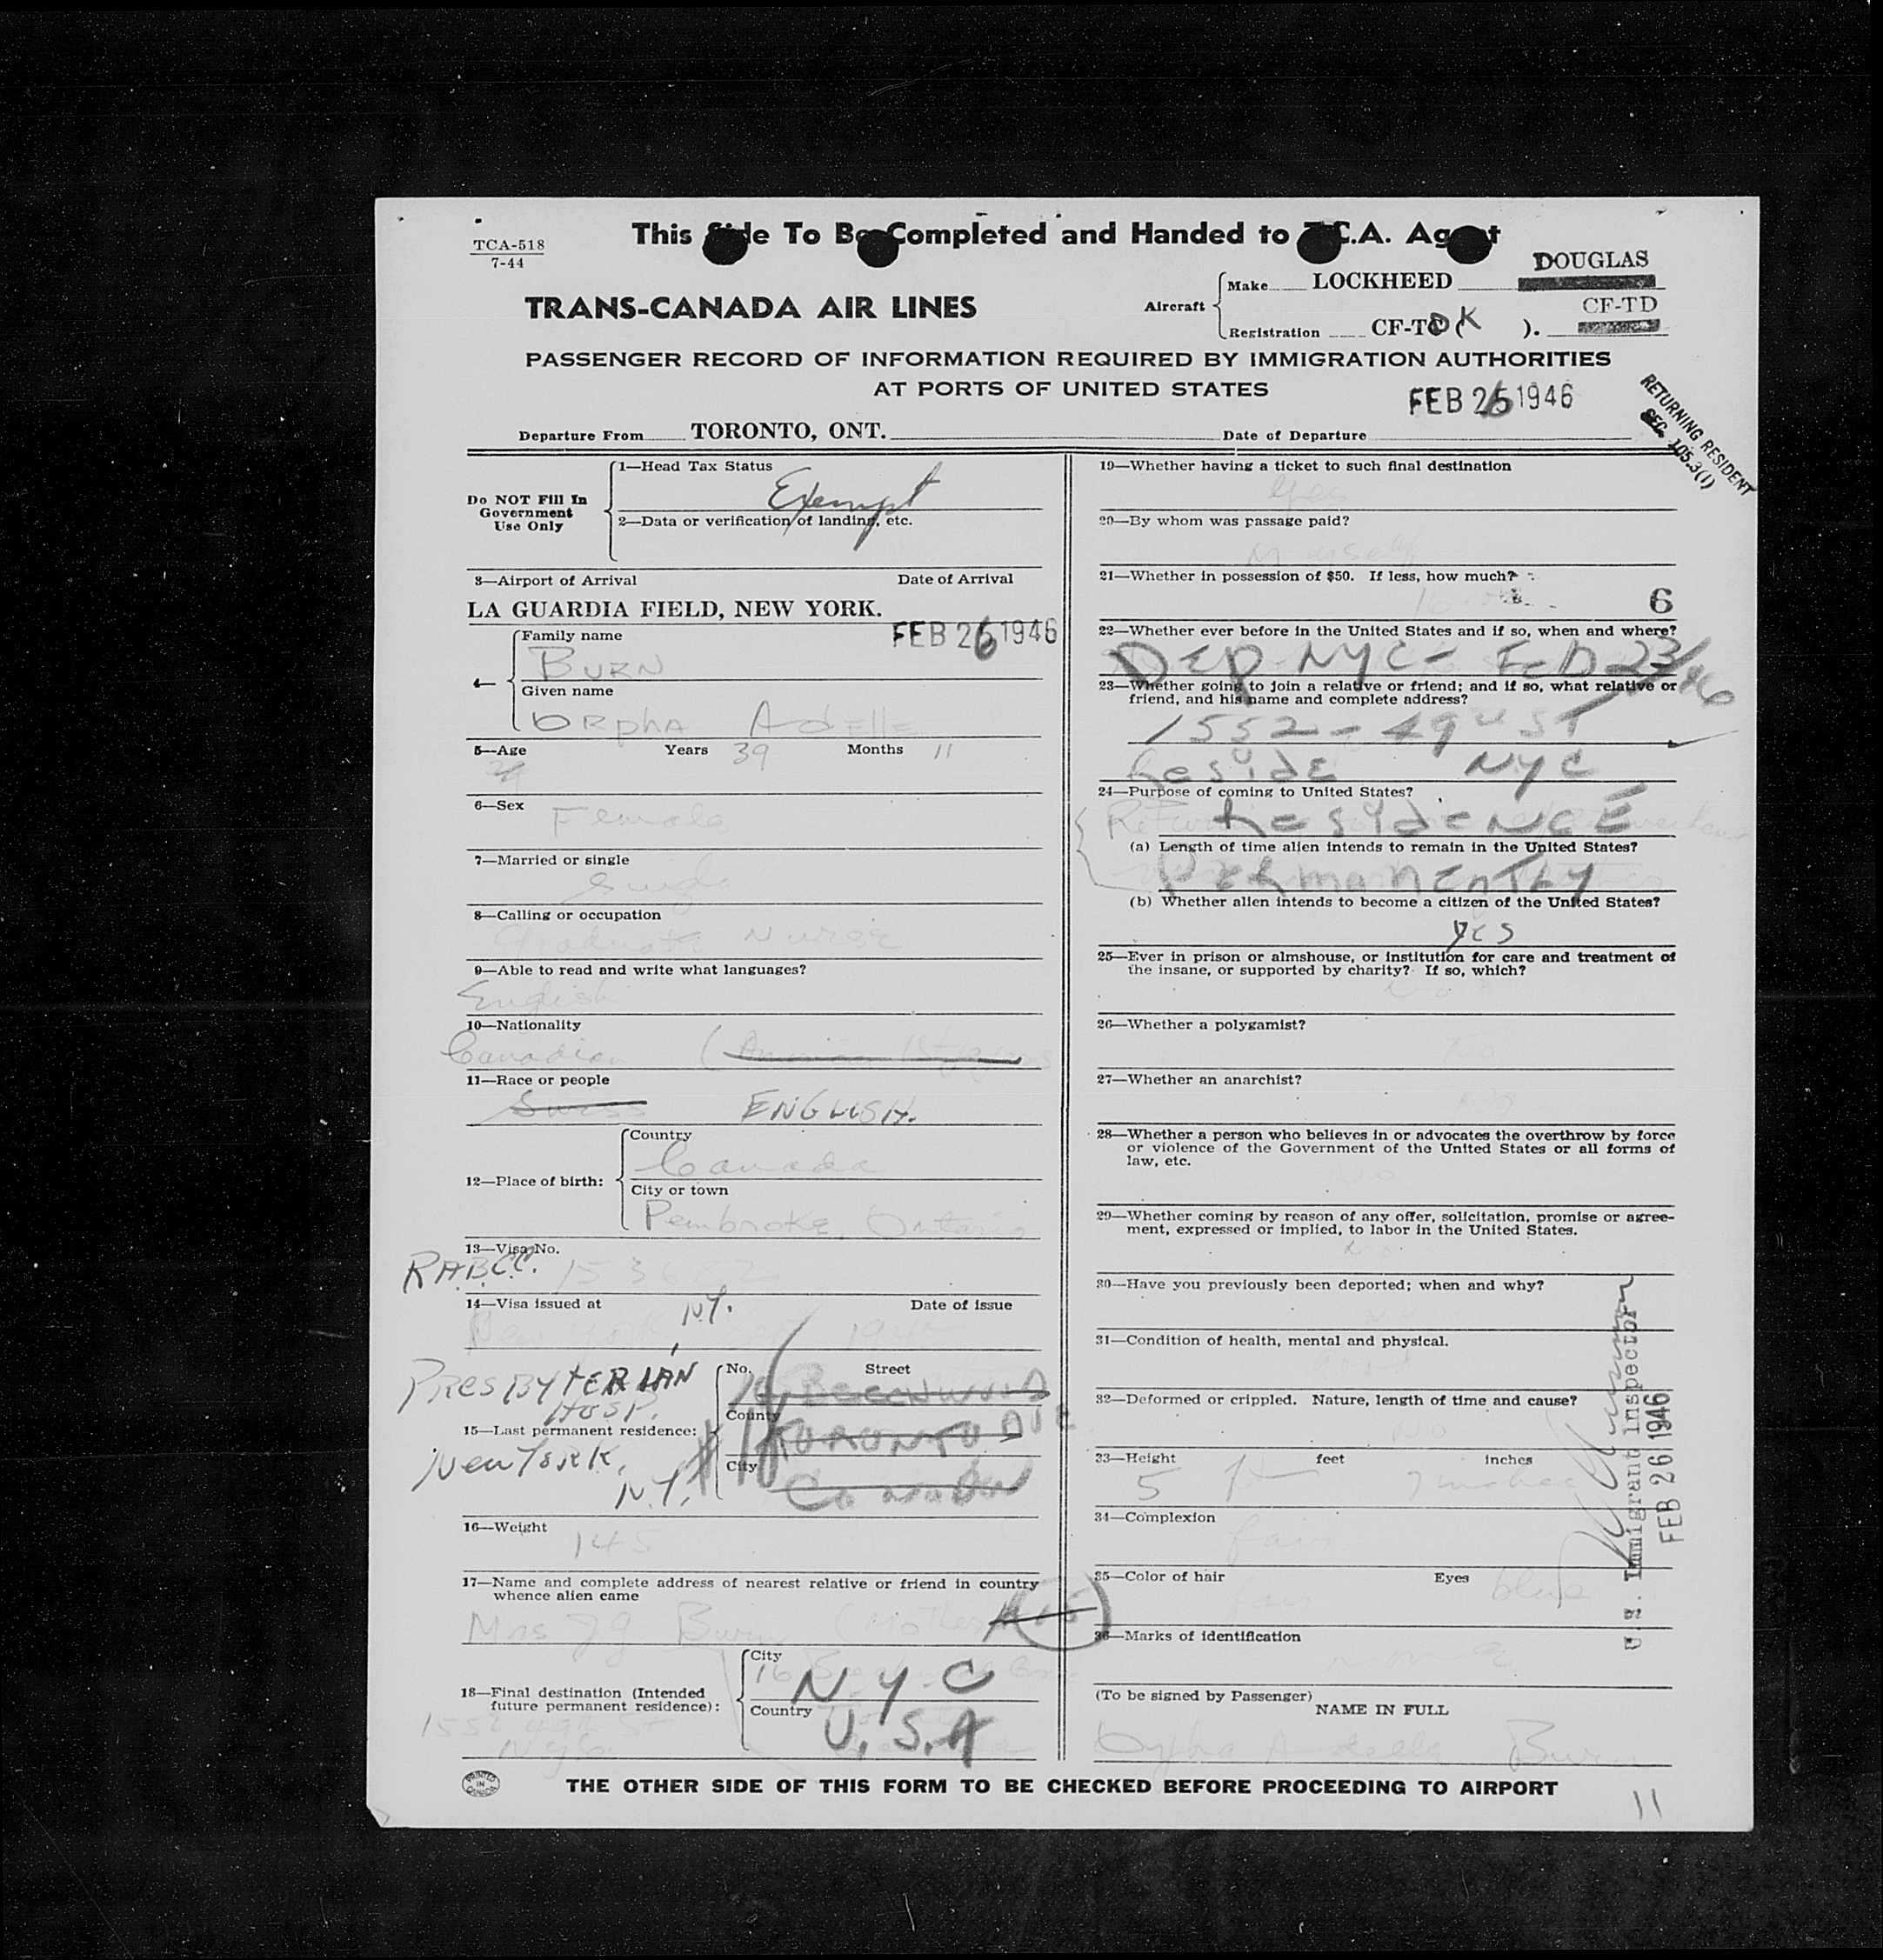 TCA-518
7-44
This Side To Be Completed and Handed to T.C.A. Agent
TRANS-CANADA AIR LINES
Aircraft
Make LOCKHEED DOUGLAS
Registration CF-TC (DK ). CF-TD
PASSENGER RECORD OF INFORMATION REQUIRED BY IMMIGRATION AUTHORITIES
AT PORTS OF UNITED STATES
FEB 26 1946
RETURNING RESIDENT
SEC. 105.3(1)
Departure From TORONTO, ONT. Date of Departure
Do NOT Fill In
Government
Use Only
1—Head Tax Status
Exempt
2—Data or verification of landing, etc.
3—Airport of Arrival Date of Arrival
LA GUARDIA FIELD, NEW YORK. FEB 26 1946
4—
Family name
BURN
Given name
Orpha Adelle
5—Age Years 39 Months 11
6—Sex
Female
7—Married or single
Single
8—Calling or occupation
Graduate Nurse
9—Able to read and write what languages?
English
10—Nationality
Canadian
11—Race or people
Swiss ENGLISH.
12—Place of birth:
Country
Canada
City or town
Pembroke, Ontario
13—Visa No.
R.A.B.C.C.
14—Visa issued at N.Y. Date of issue
New York
No. Street
16 BEECHWOOD
County AVE
TORONTO
City
CANADA
15—Last permanent residence:
PRESBYTERIAN
HOSP.
New York,
N.Y.
16—Weight
145
17—Name and complete address of nearest relative or friend in country
whence alien came
Mrs J G Burn (Mother)
18—Final destination (Intended
future permanent residence):
City
N.Y.C
Country
U.S.A
19—Whether having a ticket to such final destination
Yes
20—By whom was passage paid?
Myself
21—Whether in possession of $50. If less, how much?
6
22—Whether ever before in the United States and if so, when and where?
DEP NYC - FEB 23/46
23—Whether going to join a relative or friend; and if so, what relative or
friend, and his name and complete address?
1552 - 49th ST
Reside NYC
24—Purpose of coming to United States?
Residence
(a) Length of time alien intends to remain in the United States?
Permanently
(b) Whether alien intends to become a citizen of the United States?
yes
25—Ever in prison or almshouse, or institution for care and treatment of
the insane, or supported by charity? If so, which?
26—Whether a polygamist?
no
27—Whether an anarchist?
no
28—Whether a person who believes in or advocates the overthrow by force
or violence of the Government of the United States or all forms of
law, etc.
no
29—Whether coming by reason of any offer, solicitation, promise or agree-
ment, expressed or implied, to labor in the United States.
30—Have you previously been deported; when and why?
31—Condition of health, mental and physical.
32—Deformed or crippled. Nature, length of time and cause?
no
33—Height feet inches
5 ft 7 inches
34—Complexion
fair
35—Color of hair Eyes
fair blue
36—Marks of identification
none
U.S. Immigrant Inspector
FEB 26 1946
(To be signed by Passenger)
NAME IN FULL
Orpha Adelle Burn
1552 49th ST
NYC
PRINTED IN CANADA
THE OTHER SIDE OF THIS FORM TO BE CHECKED BEFORE PROCEEDING TO AIRPORT
11